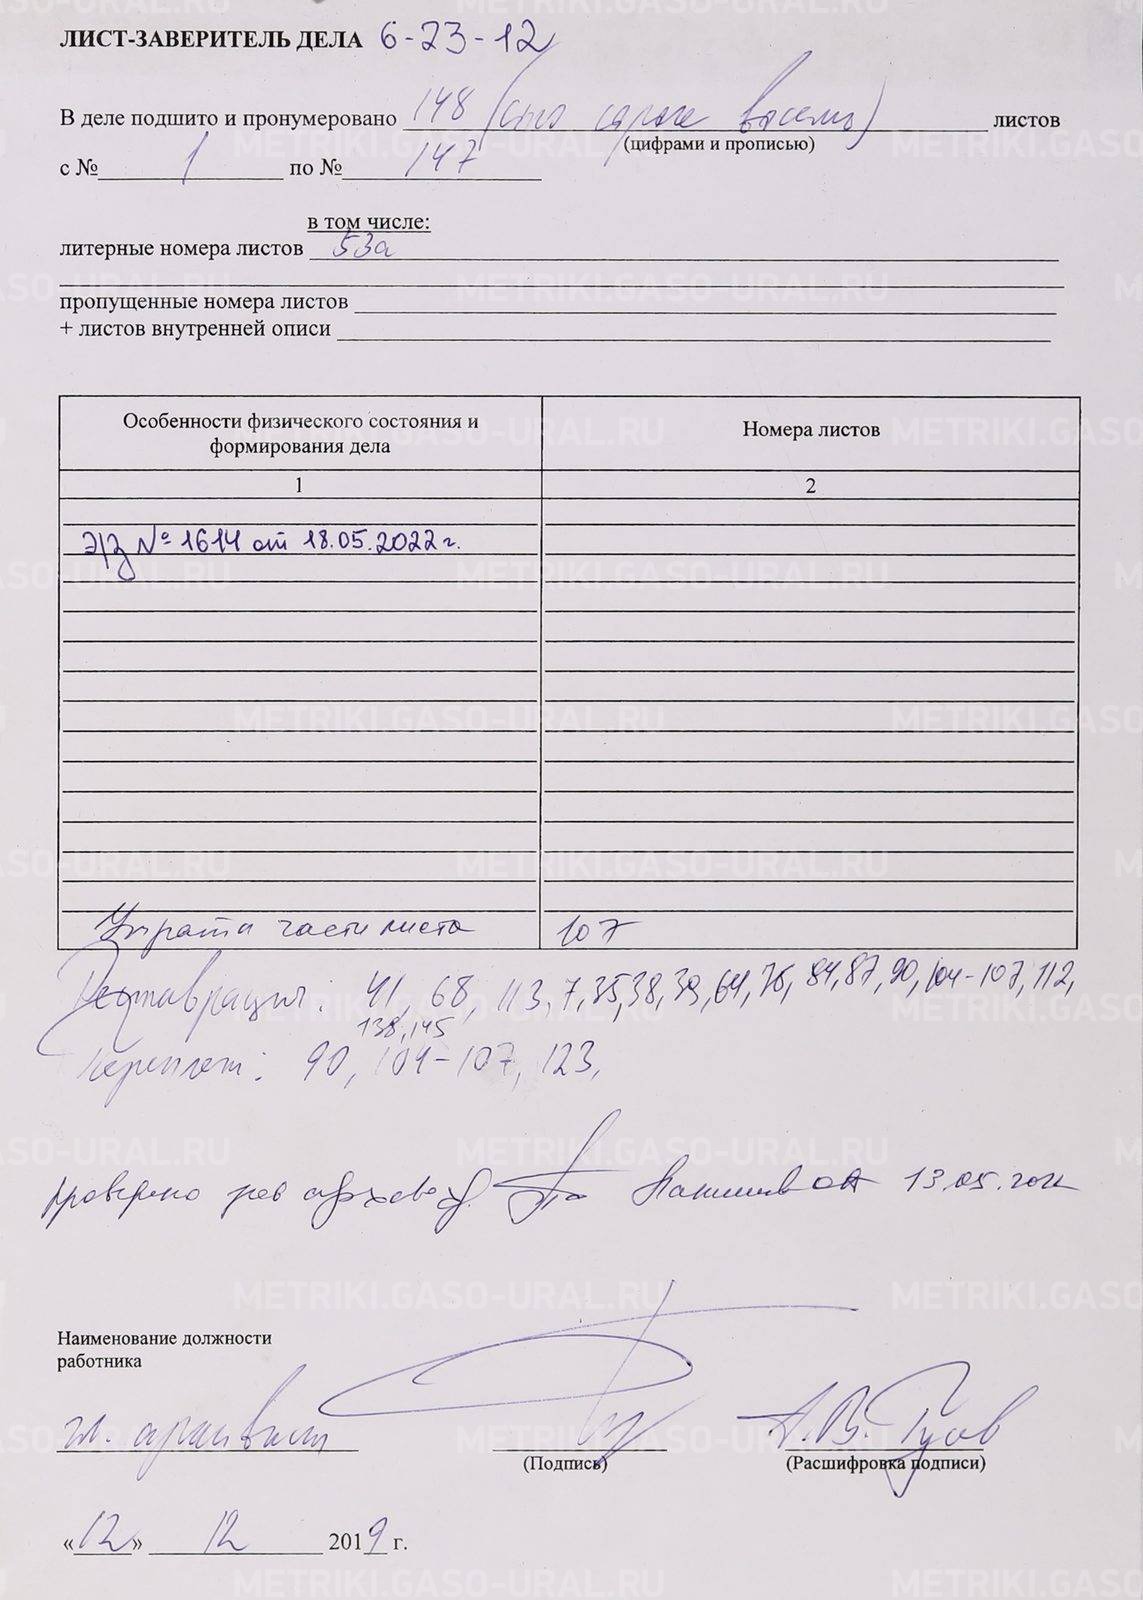 ЛИСТ-ЗАВЕРИТЕЛЬ ДЕЛА 6-23-12
В деле подшито и пронумеровано 148 (сто сорок восемь) листов
(цифрами и прописью)
с № 1 по № 147
в том числе:
литерные номера листов 53а
пропущенные номера листов
+ листов внутренней описи
Особенности физического состояния и формирования дела
Номера листов
1 2
Э/З № 1614 от 18.05.2022 г.
Утрата части листа 107
Реставрация: 41, 68, 113, 7, 35, 38, 39, 64, 76, 84, 87, 90, 104-107, 112,
138, 145
Переплет: 90, 104-107, 123,
проверено 13.05.2022
Наименование должности
работника
гл. архивист А.В. Гусев
(Подпись) (Расшифровка подписи)
«12» 12 2019 г.
METRIKI.GASO-URAL.RU